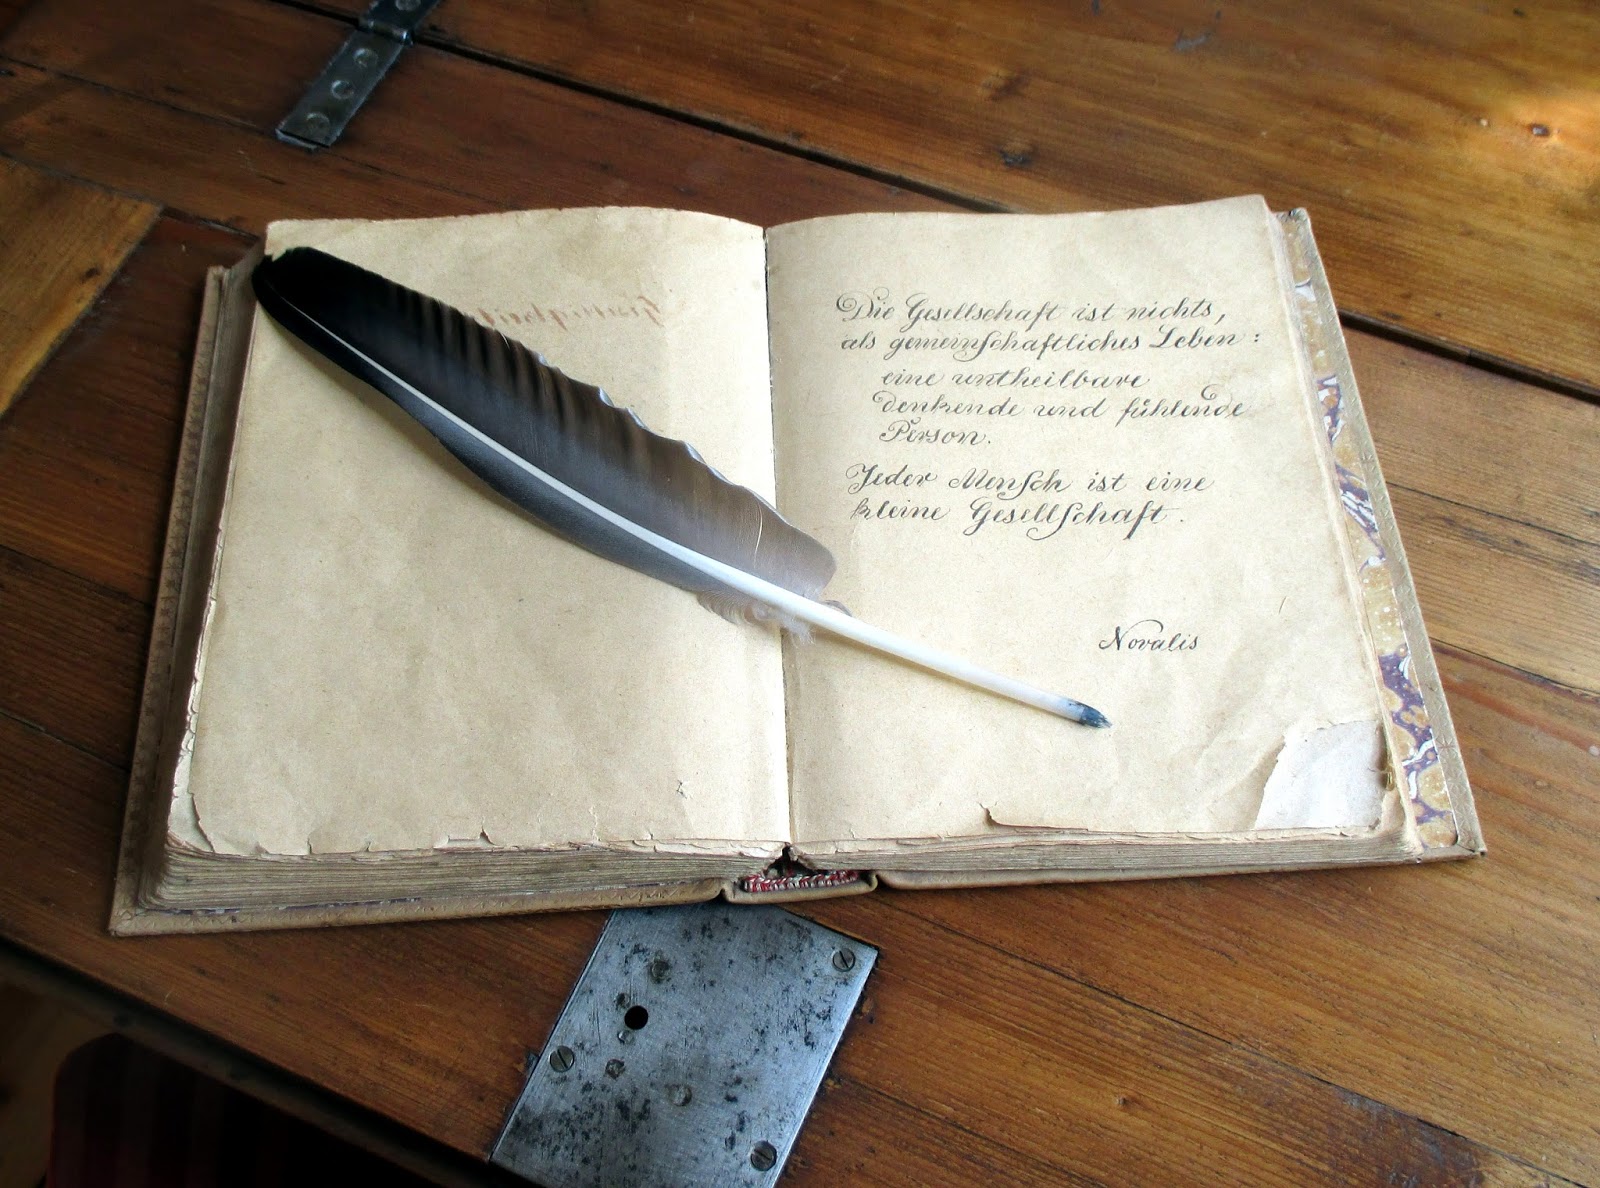 Die Gesellschaft ist nichts,
als gemeinschaftliches Leben:
eine untheilbare
denkende und fühlende
Person.
Jeder Mensch ist eine
kleine Gesellschaft.
Novalis